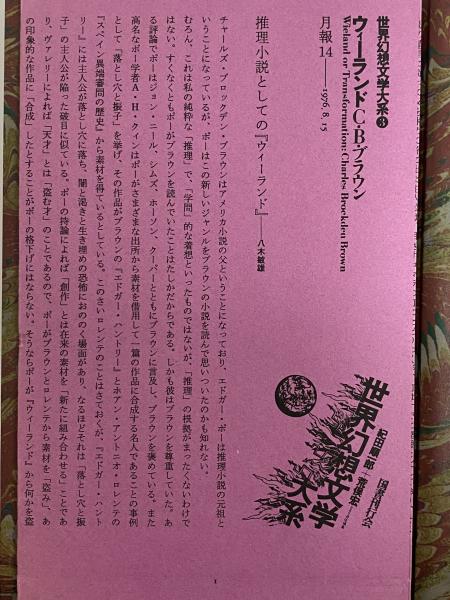 世界幻想文学大系❸
ウィーランド C・B・ブラウン
Wieland or Transformation: Charles Brockden Brown
月報14——1976.8.15
世界幻想文学大系
紀田順一郎
荒俣宏
国書刊行会
推理小説としての『ウィーランド』——八木敏雄
チャールズ・ブロックデン・ブラウンはアメリカ小説の父ということになっており、エドガー・ポーは推理小説の元祖と
いうことになっているが、ポーはこの新しいジャンルをブラウンの小説を読んで思いついたのかも知れない。
むろん、これは私の純粋な「推理」で、「学問」的な着想といったものではないが、「推理」の根拠がまったくないわけで
はない。すくなくともポーがブラウンを読んでいたことはたしかだからである。しかも彼はブラウンを尊重していた。あ
る評論でポーはジョン・ニール、シムズ、ホーソン、クーパーとともにブラウンに言及し、ブラウンを褒めている。また
高名なポー学者A・H・クインはポーがさまざまな出所から素材を借用して一篇の作品に合成する名人であることの事例
として「落とし穴と振子」を挙げ、その作品がブラウンの『エドガー・ハントリー』とホアン・アントニオ・ロレンテの
『スペイン異端審問の歴史』から素材を得ているとしている。このさいロレンテのことはさておくが、『エドガー・ハント
リー』には主人公が落とし穴に落ち、闇と渇きと生き埋めの恐怖におののく場面があり、なるほどそれは「落とし穴と振
子」の主人公が陥った破目に似ている。ポーの持論によれば「創作」とは在来の素材を「新たに組み合わせる」ことであ
り、ヴァレリーによれば「天才」とは「盗む才」のことであるので、ポーがブラウンとロレンテから素材を「盗み」、あ
の印象的な作品に「合成」したとすることがポーの格下げにはならない。そうならポーが『ウィーランド』から何かを盗
1